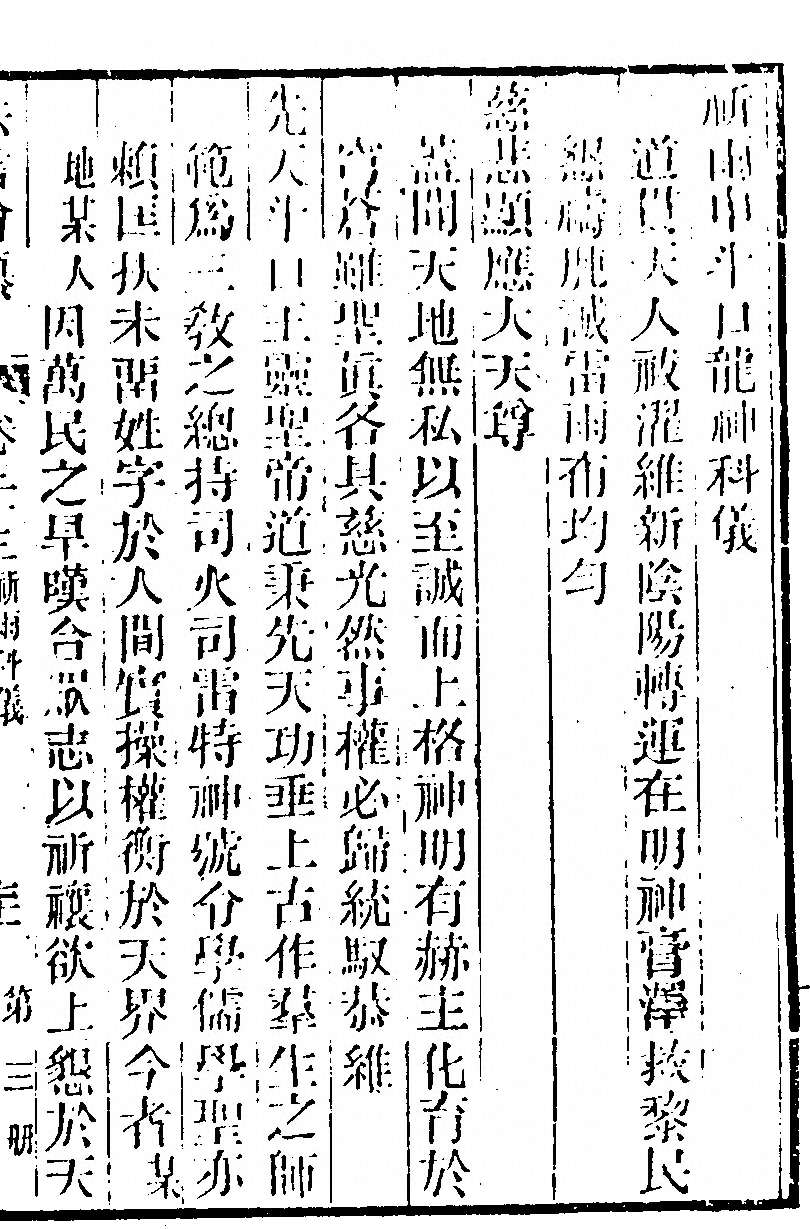 祈雨申斗口龍神科儀
道貫天人祓濯維新陰陽轉運在明神膏澤救黎民
緜禱虔誠雷雨布均勻
慈悲顯應大天尊
蓋聞天地無私以至誠而上格神明有赫主化育於
穹蒼雖聖眞各具慈光然事權必歸統馭恭維
先天斗口王靈聖帝道秉先天功垂上古作羣生之師
範爲三教之總持司火司雷特神號令學儒學聖亦
賴匡扶未留姓字於人間實操權衡於天界今者某
地某人因萬民之旱嘆合眾志以祈禳欲上懇於天
祈雨科儀
第三册